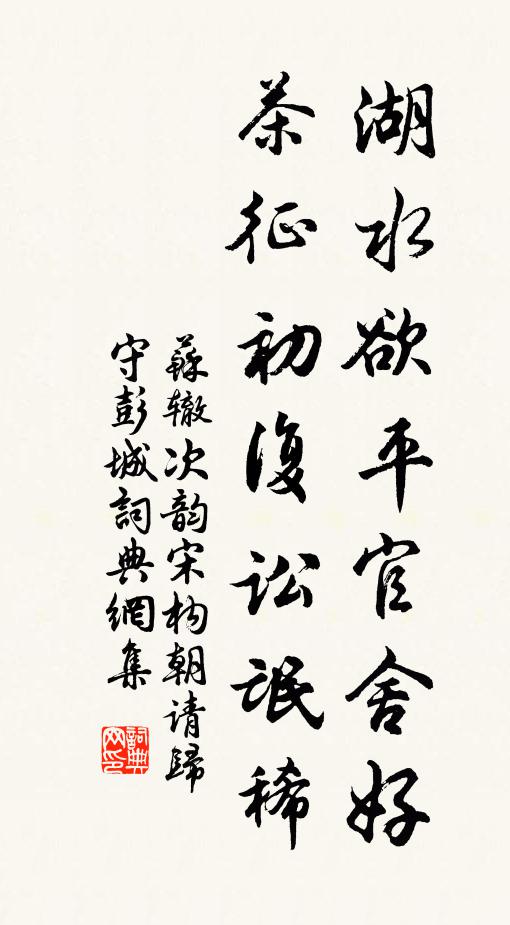 湖水欲平官舍好
茶征初復訟氓稀
蘇辙次韵宋构朝请歸
守彭城詞典網集
詞典
网印